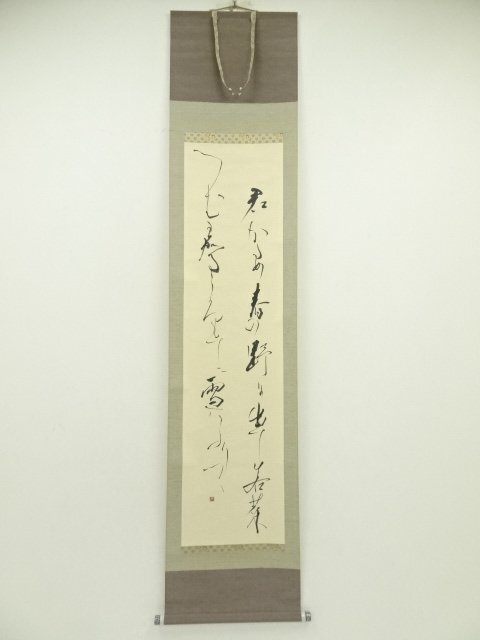 君かため春の野に出て若菜
つむ我衣手に雪はふりつゝ